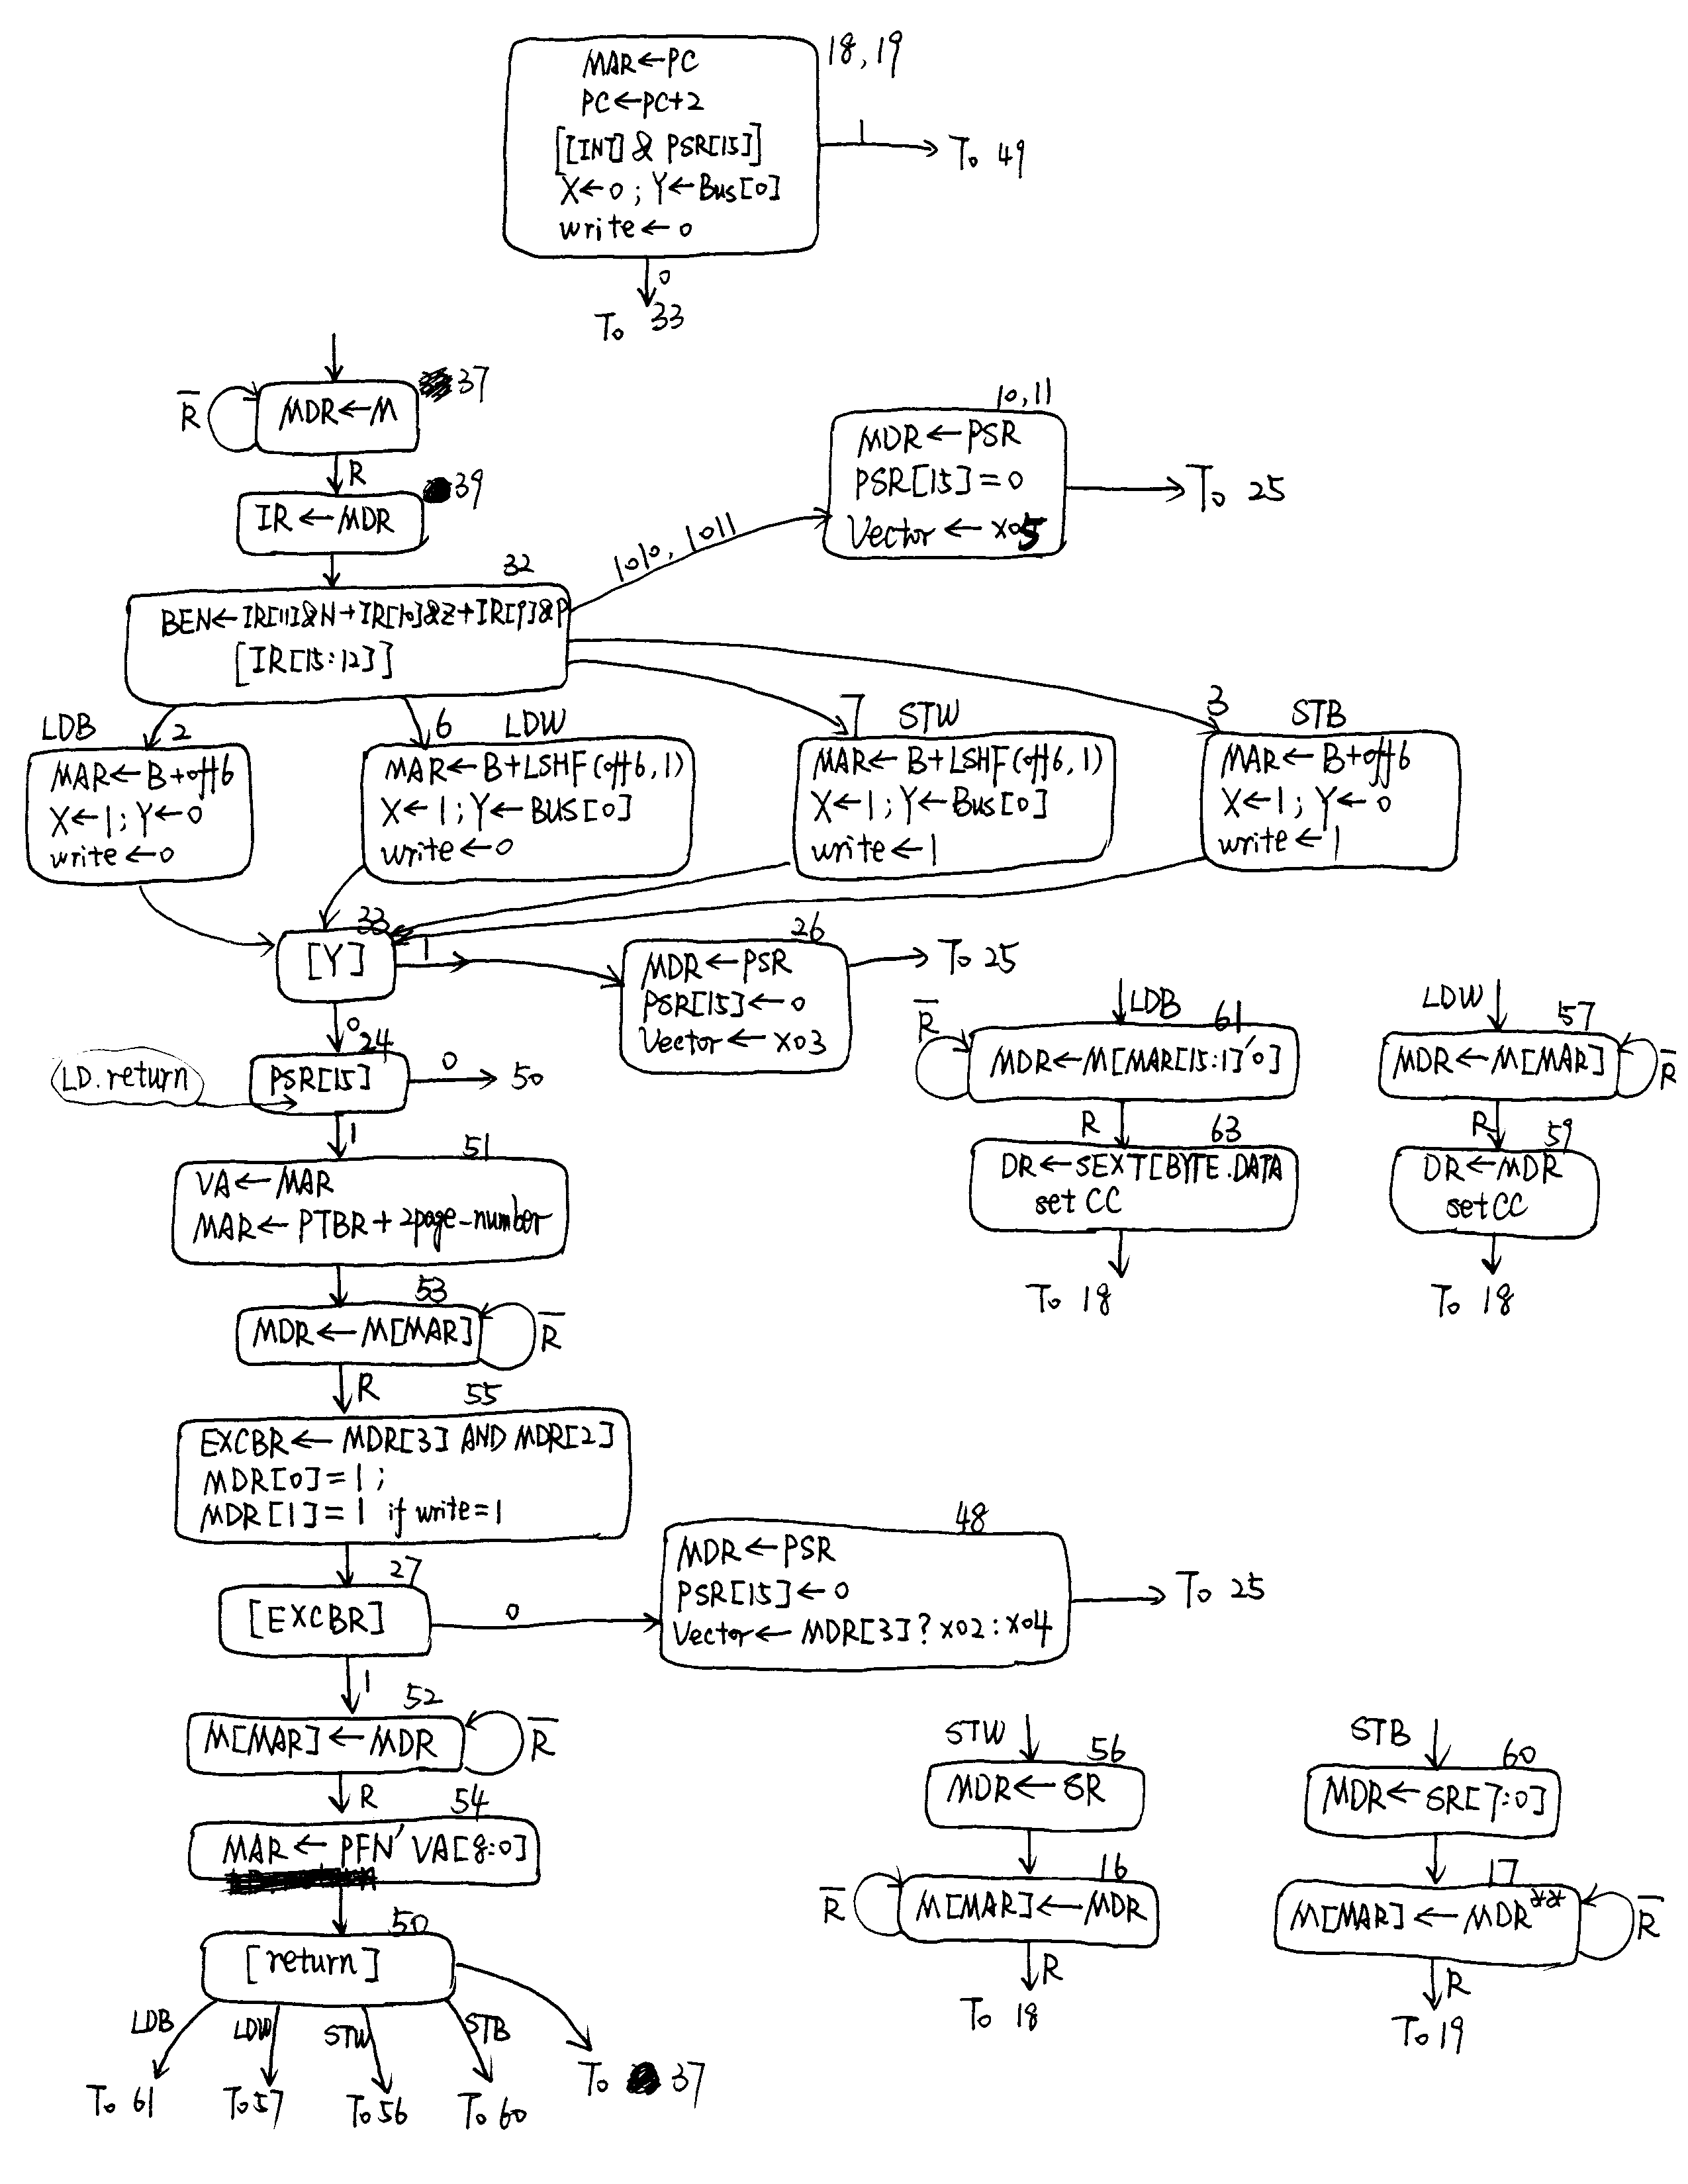 18,19
MAR←PC
PC←PC+2
[[INT] & PSR[15]]
X←0; Y←Bus[0]
write←0
1
To 49
0
To 33
R̅
MDR←M
37
R
IR←MDR
39
10,11
MDR←PSR
PSR[15]=0
Vector←x05
To 25
1010, 1011
32
BEN←IR[11]&N+IR[10]&Z+IR[9]&P
[IR[15:12]]
LDB
2
MAR←B+off6
X←1; Y←0
write←0
6
LDW
MAR←B+LSHF(off6,1)
X←1; Y←BUS[0]
write←0
7
STW
MAR←B+LSHF(off6,1)
X←1; Y←Bus[0]
write←1
3
STB
MAR←B+off6
X←1; Y←0
write←1
33
[Y]
1
26
MDR←PSR
PSR[15]←0
Vector←x03
To 25
0
24
LD.return
PSR[15]
0
50
1
51
VA←MAR
MAR←PTBR+2page-number
53
MDR←M[MAR]
R̅
R
55
EXCBR←MDR[3] AND MDR[2]
MDR[0]=1;
MDR[1]=1 if write=1
27
[EXCBR]
0
48
MDR←PSR
PSR[15]←0
Vector←MDR[3]?x02:x04
To 25
1
52
M[MAR]←MDR
R̅
R
54
MAR←PFN'VA[8:0]
50
[return]
LDB
LDW
STW
STB
To 61
To 57
To 56
To 60
To 37
LDB
61
R̅
MDR←M[MAR[15:1]'0]
R
63
DR←SEXT[BYTE.DATA
set CC
To 18
LDW
57
MDR←M[MAR]
R̅
R
59
DR←MDR
set CC
To 18
STW
56
MDR←SR
16
R̅
M[MAR]←MDR
R
To 18
STB
60
MDR←SR[7:0]
17
M[MAR]←MDR**
R̅
R
To 19